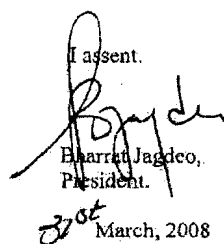 I assent.
Bharrat Jagdeo,
President.
31st March, 2008